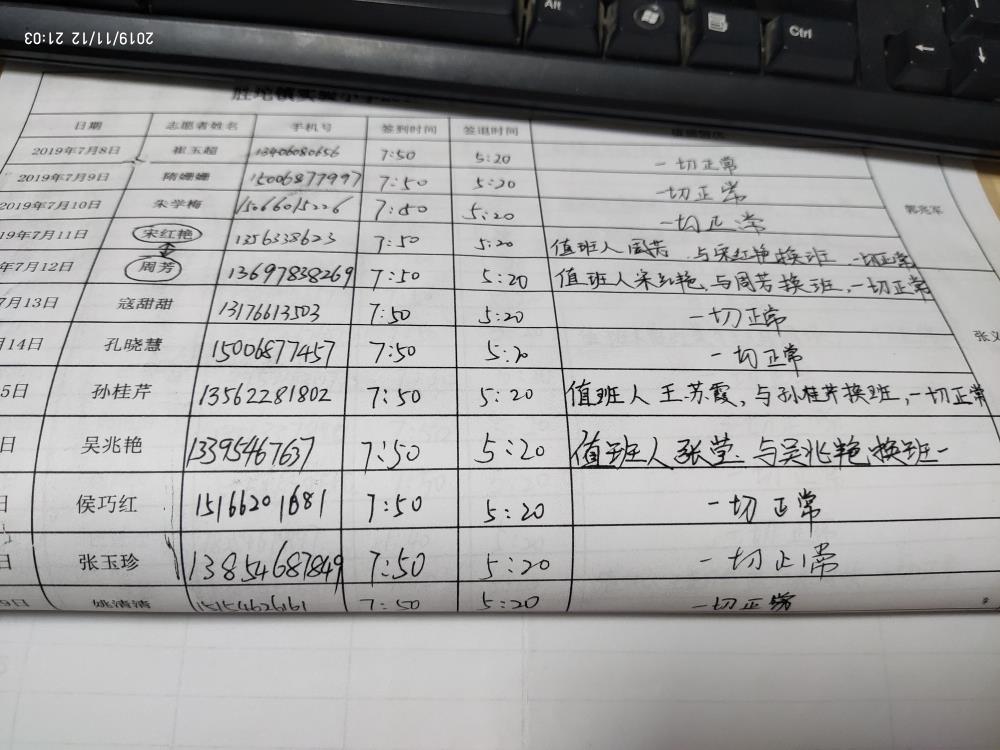 2019/11/12 21:03
Alt
Ctrl
日期 志愿者姓名 手机号 签到时间 签退时间
2019年7月8日 崔玉超 13406080656 7:50 5:20 一切正常
2019年7月9日 隋姗姗 15006877997 7:50 5:20 一切正常
2019年7月10日 朱学梅 15066015226 7:50 5:20 一切正常 郭兆军
19年7月11日 宋红艳 1356338623 7:50 5:20 值班人周芳、与宋红艳换班 一切正常
年7月12日 周芳 13697838269 7:50 5:20 值班人宋红艳、与周芳换班,一切正常
7月13日 寇甜甜 13176613503 7:50 5:20 一切正常
月14日 孔晓慧 15006877457 7:50 5:20 一切正常 张义
5日 孙桂芹 13562281802 7:50 5:20 值班人王苏霞,与孙桂芹换班,一切正常
日 吴兆艳 13395467637 7:50 5:20 值班人张莹、与吴兆艳换班一
日 侯巧红 15166201681 7:50 5:20 一切正常
日 张玉珍 13854687849 7:50 5:20 一切正常
9日 姚清清 15154626161 7:50 5:20 一切正常